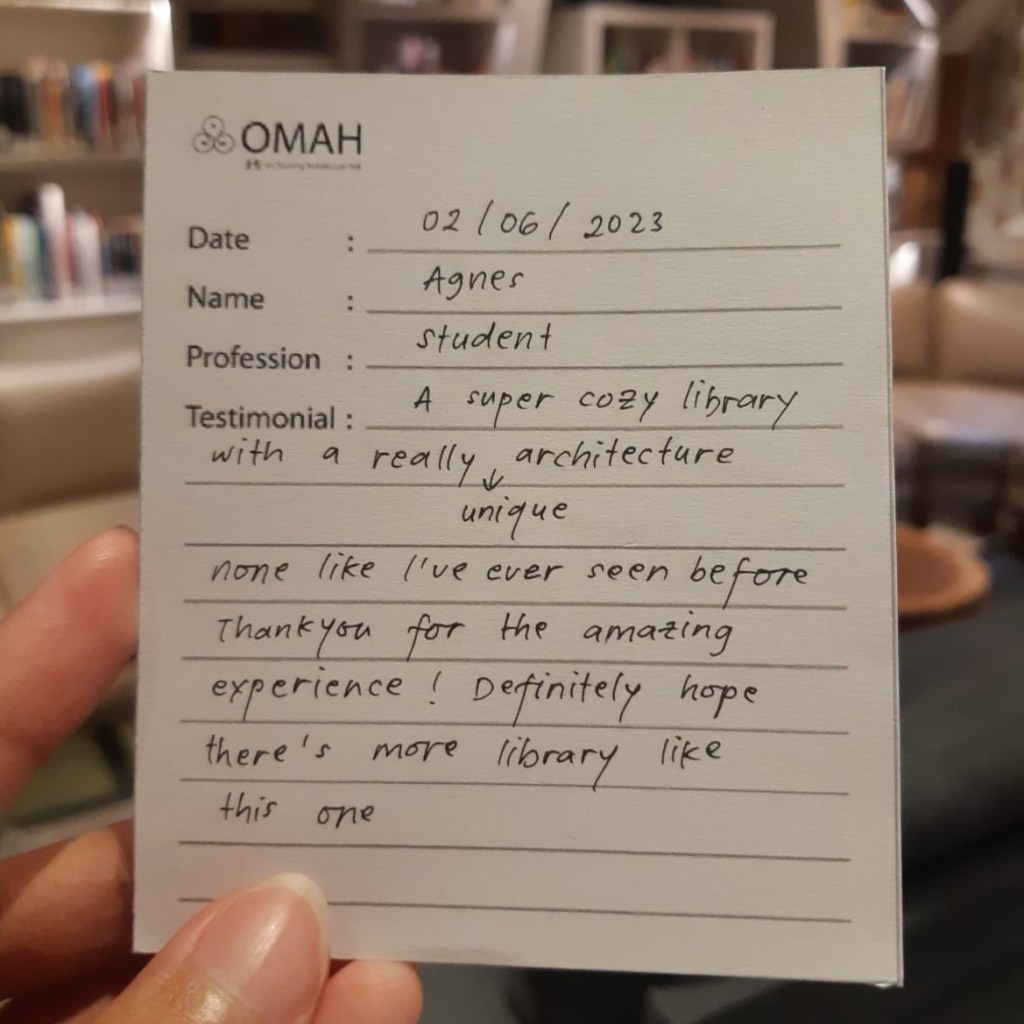 OMAH
Date : 02 / 06 / 2023
Name : Agnes
Profession : student
Testimonial : A super cozy library
with a really ↓ architecture
unique
none like I've ever seen before
Thankyou for the amazing
experience ! Definitely hope
there's more library like
this one